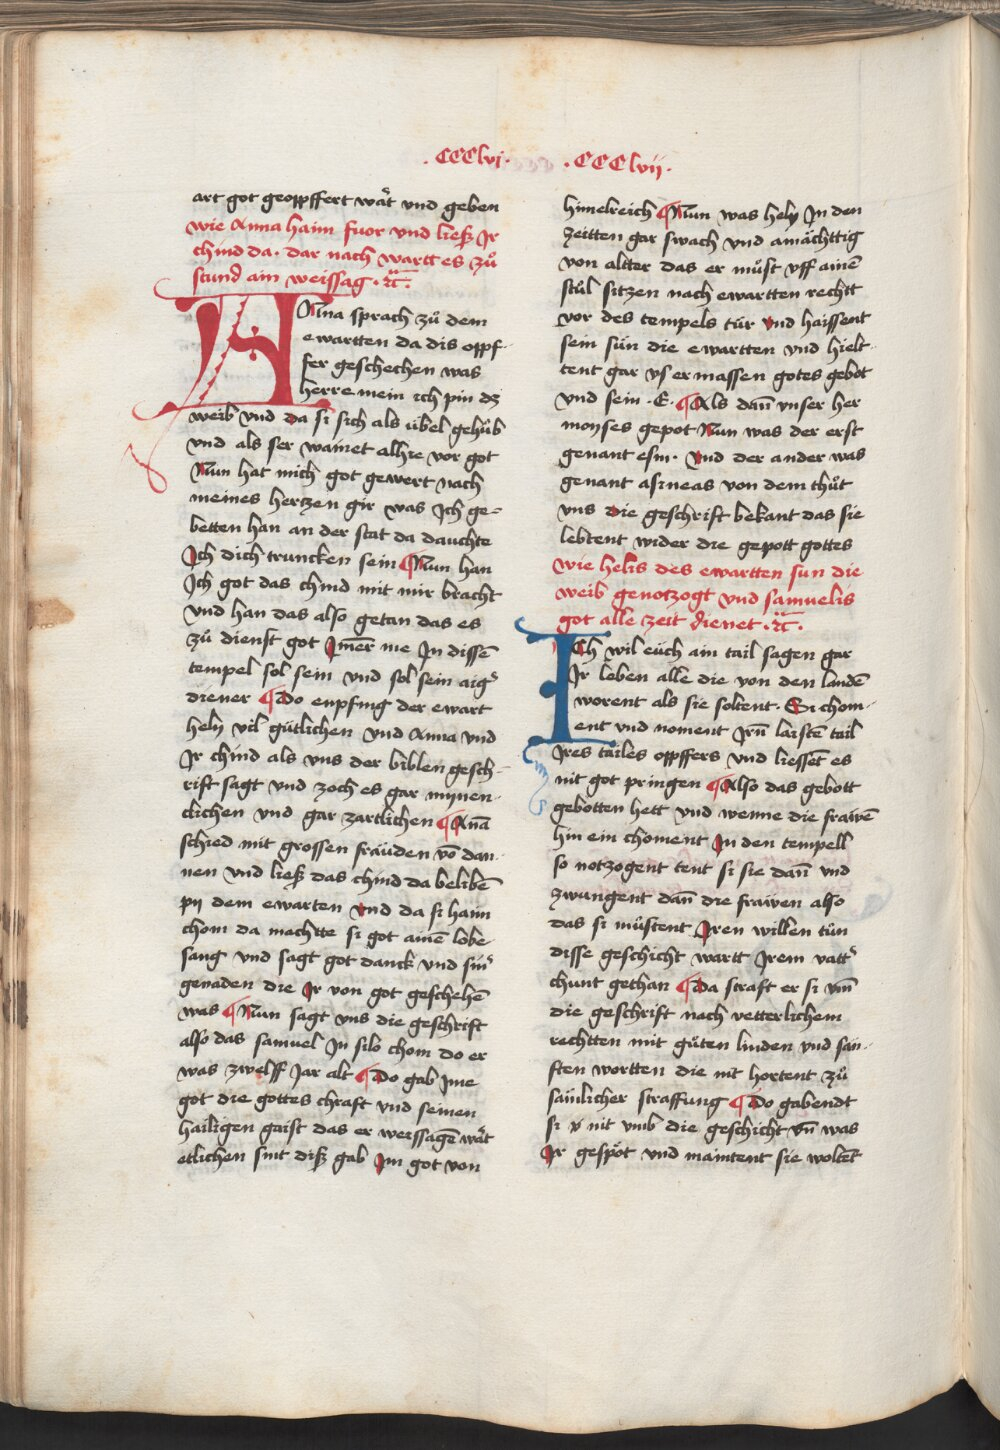 .CCClvj.
art got geopffert wart̄ vnd geben
wie Anna haim fuor vnd ließ Jr
chind da. dar nach wartt es zů
stund ain weissag. ⁊c̈.
ANna sprach zů dem
ewartten da dis oppf-
fer geschechen was
herre mein ich pin dz
weib vnd da si sich als übel gehůb
vnd als ser wainet alhie vor got
Nun hat mich got gewert nach
meines hertzen gir was Jch ge-
betten han an der stat da dauchte
Jch dich truncken sein ¶Nun han
Jch got das chind mit mir bracht
vnd han das also getan das es
zů dienst got Jm̄er me Jn dissē
tempel sol sein vnd sol sein aigr̄
diener ¶Do enpfing der ewart
hely vil gütlichen vnd Anna vnd
Jr chind als vns der biblen gesch-
rift sagt vnd zoch es gar mynen-
clichen vnd gar zartlichen ¶Anā
schied mit grossen fräuden vō dan-
nen vnd ließ das chind da belibē
py dem ewarten vnd da si haim
chom da machtte si got ainē lobe-
sang vnd sagt got danck vnd sinr̄
genaden die Jr von got geschehē
was ¶Nun sagt vns die geschrift
also das samuel Jn silo chom do er
was zwelff Jar alt ¶Do gab Jme
got die gottes chraft vnd seinen
hailigen gaist das er weissagē wāt
etlichen sint diß gab Jm got von
.CCClvii.
himelreich ¶Nun was hely Jn den
zeitten gar swach vnd amächttig
von altter das er můst vff ainē
stůl sitzen nach ewartten rechtt
vor des tempels tür vnd haissent
sein sün die ewartten vnd hielt-
tent gar vs ermassen gotes gebot
vnd sein .E. ¶Als dan̄ vnser her
moyses gepot Nun was der erst
genant efni. vnd der ander was
genant asineas von dem thůt
vns die geschrift bekant das sie
lebtent wider die gepott gottes
wie helis des ewartten sun die
weib genotzogt vnd samuelis
got alle zeit dienet. ⁊c̈.
ICh wil eüch ain tail sagen gar
Jr leben alle die von den landē
worent als sie soltent. Si chom-
ent vnd noment Jrn̄ laistē tail
Jres tailes oppffers vnd liessēt es
nit got pringen ¶Also das gebott
gebotten hett vnd wenne die frawē
hin ein choment Jn den tempell
so notzogent tent si sie dan̄ vnd
zwungent dan̄ die frawen also
das si můstent Jren willen tůn
disse geschicht wartt Jrem vattr̄
chunt gethan ¶Da straft er si vm̄
die geschrift nach vetterlichem
rechtten mit gůten linden vnd sän-
ften wortten die nit hortent zů
sämlicher straffung ¶Do gabendt
si v nit vmb die geschicht vn̄ was
Jr gespöt vnd maintent sie woltēt